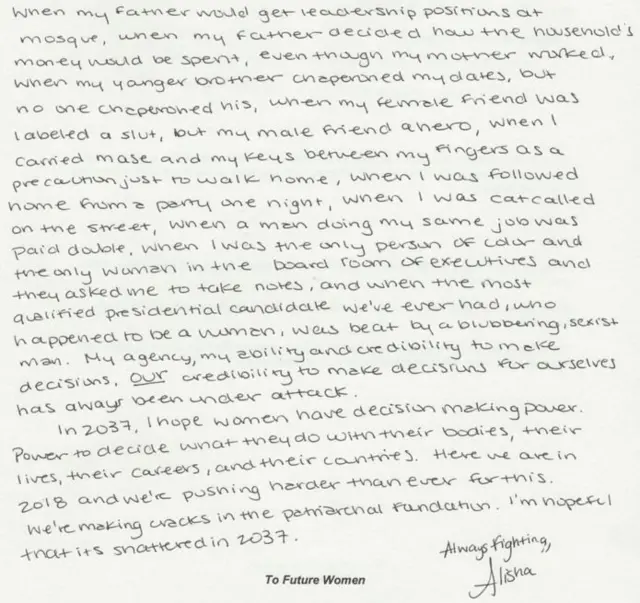 When my father would get leadership positions at
mosque, when my father decided how the household's
money would be spent, even though my mother worked,
when my yanger brother chaperoned my dates, but
no one chaperoned his, when my female friend was
labeled a slut, but my male friend a hero, when I
carried mase and my keys between my fingers as a
precaution just to walk home, when I was followed
home from a party one night, when I was catcalled
on the street, when a man doing my same job was
paid double, when I was the only person of color and
the only woman in the board room of executives and
they asked me to take notes, and when the most
qualified presidential candidate we've ever had, who
happened to be a woman, was beat by a blubbering, sexist
man. My agency, my ability and credibility to make
decisions, our credibility to make decisions for ourselves
has always been under attack.
In 2037, I hope women have decision making power.
Power to decide what they do with their bodies, their
lives, their careers, and their countries. Here we are in
2018 and we're pushing harder than ever for this.
We're making cracks in the patriarchal fundation. I'm hopeful
that its shattered in 2037.
Always fighting,
Alisha
To Future Women